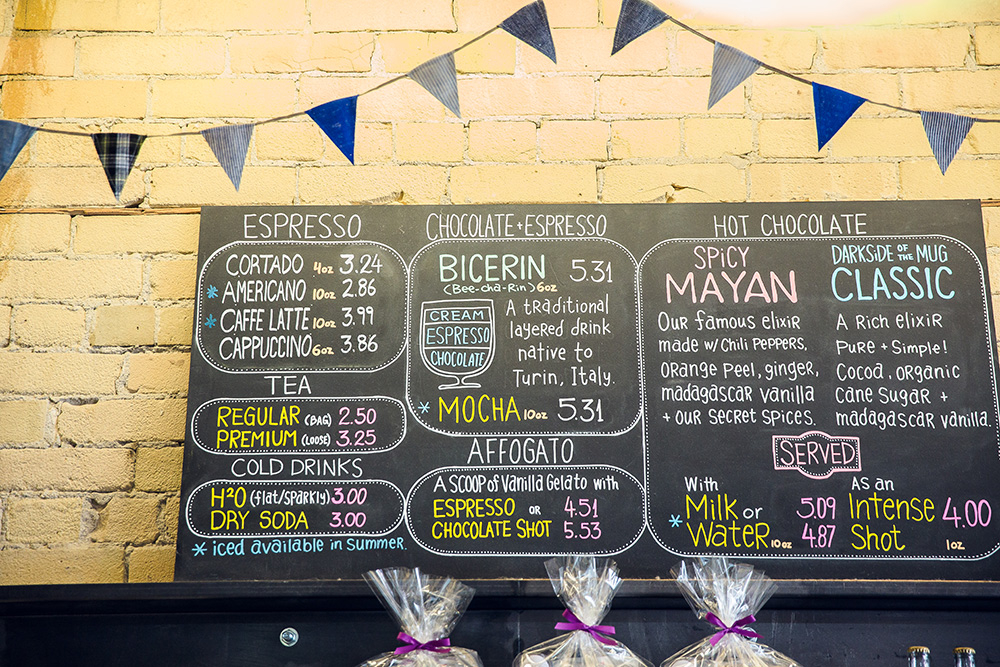 ESPRESSO
CORTADO 4oz 3.24
* AMERICANO 10oz 2.86
* CAFFE LATTE 10oz 3.99
CAPPUCCINO 6oz 3.86
TEA
REGULAR (BAG) 2.50
PREMIUM (LOOSE) 3.25
COLD DRINKS
H2O (flat/sparkly) 3.00
DRY SODA 3.00
* iced available in summer.
CHOCOLATE+ESPRESSO
BICERIN 5.31
(Bee-cha-Rin) 6oz
CREAM
ESPRESSO
CHOCOLATE
A traditional
layered drink
native to
Turin, Italy.
* MOCHA 10oz 5.31
AFFOGATO
A SCOOP of Vanilla Gelato with
ESPRESSO OR 4.51
CHOCOLATE SHOT 5.53
HOT CHOCOLATE
SPICY
MAYAN
Our famous elixir
made w/ Chili Peppers,
orange peel, ginger,
madagascar vanilla
+ our secret spices.
DARKSIDE OF THE MUG
CLASSIC
A Rich elixir
Pure + Simple!
Cocoa, organic
cane sugar +
madagascar vanilla.
SERVED
With
Milk or 5.09
* Water 10oz 4.87
As an
Intense 4.00
Shot 1oz